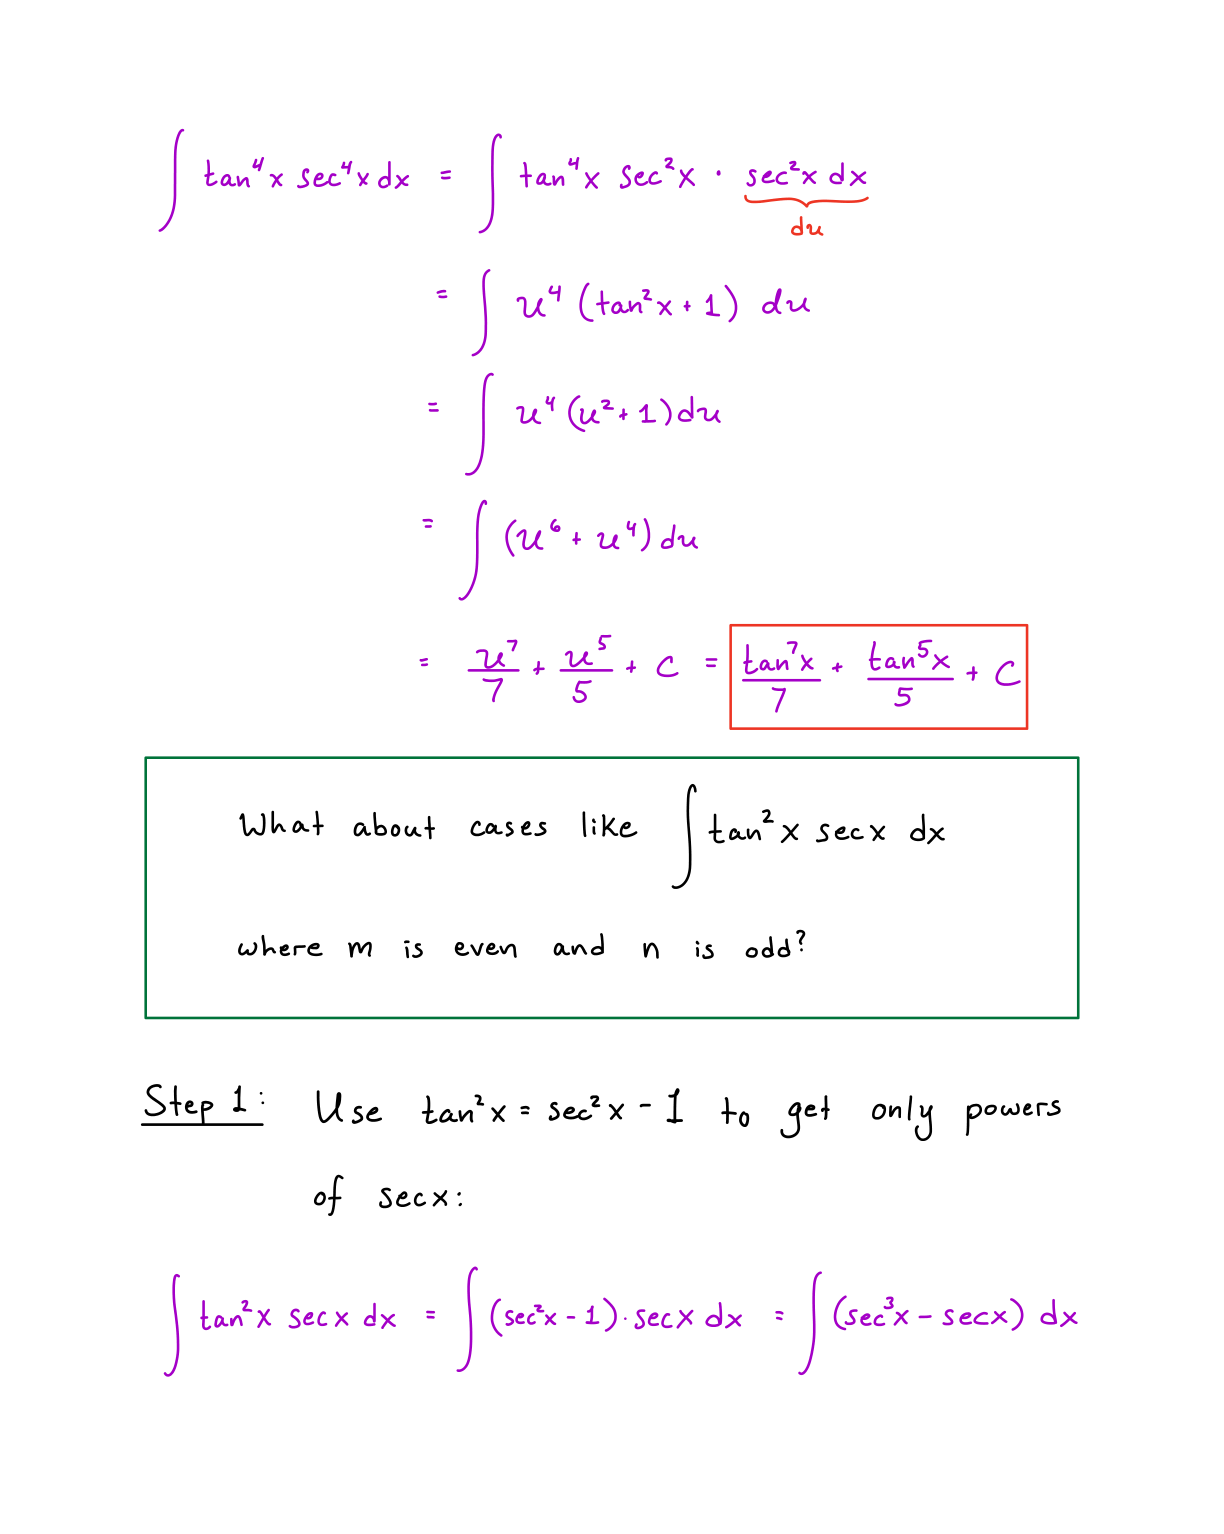 ∫ tan⁴x sec⁴x dx = ∫ tan⁴x sec²x · sec²x dx
du
= ∫ u⁴ (tan²x + 1) du
= ∫ u⁴ (u² + 1) du
= ∫ (u⁶ + u⁴) du
= u⁷/7 + u⁵/5 + C = tan⁷x/7 + tan⁵x/5 + C
What about cases like ∫ tan²x secx dx
where m is even and n is odd?
Step 1: Use tan²x = sec²x - 1 to get only powers
of secx:
∫ tan²x secx dx = ∫ (sec²x - 1) · secx dx = ∫ (sec³x - secx) dx